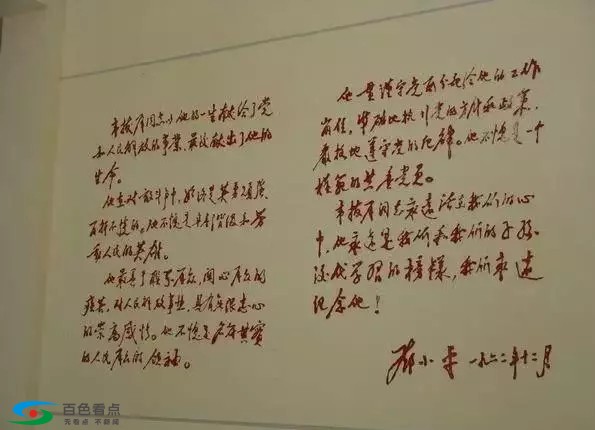 韦拔群同志以他的一生献给了党
和人民解放的事业，最后献出了他的
生命。
他在对敌斗争中，始终是英勇顽强，
百折不挠的。他不愧是无产阶级和劳
动人民的英雄。
他最善于联系群众，关心群众的
疾苦，对人民解放事业，具有无限忠心
的崇高感情。他不愧是名符其实
的人民群众的领袖。
他一贯谨守党所分配给他的工作
岗位，准确地执行党的方针和政策，
严格地遵守党的纪律。他不愧是一个
模范的共产党员。
韦拔群同志永远活在我们的心
中，他永远是我们和我们的子孙
后代学习的榜样，我们永远
纪念他！
邓小平 一九六二年十二月
百色看点
无看点 不新闻